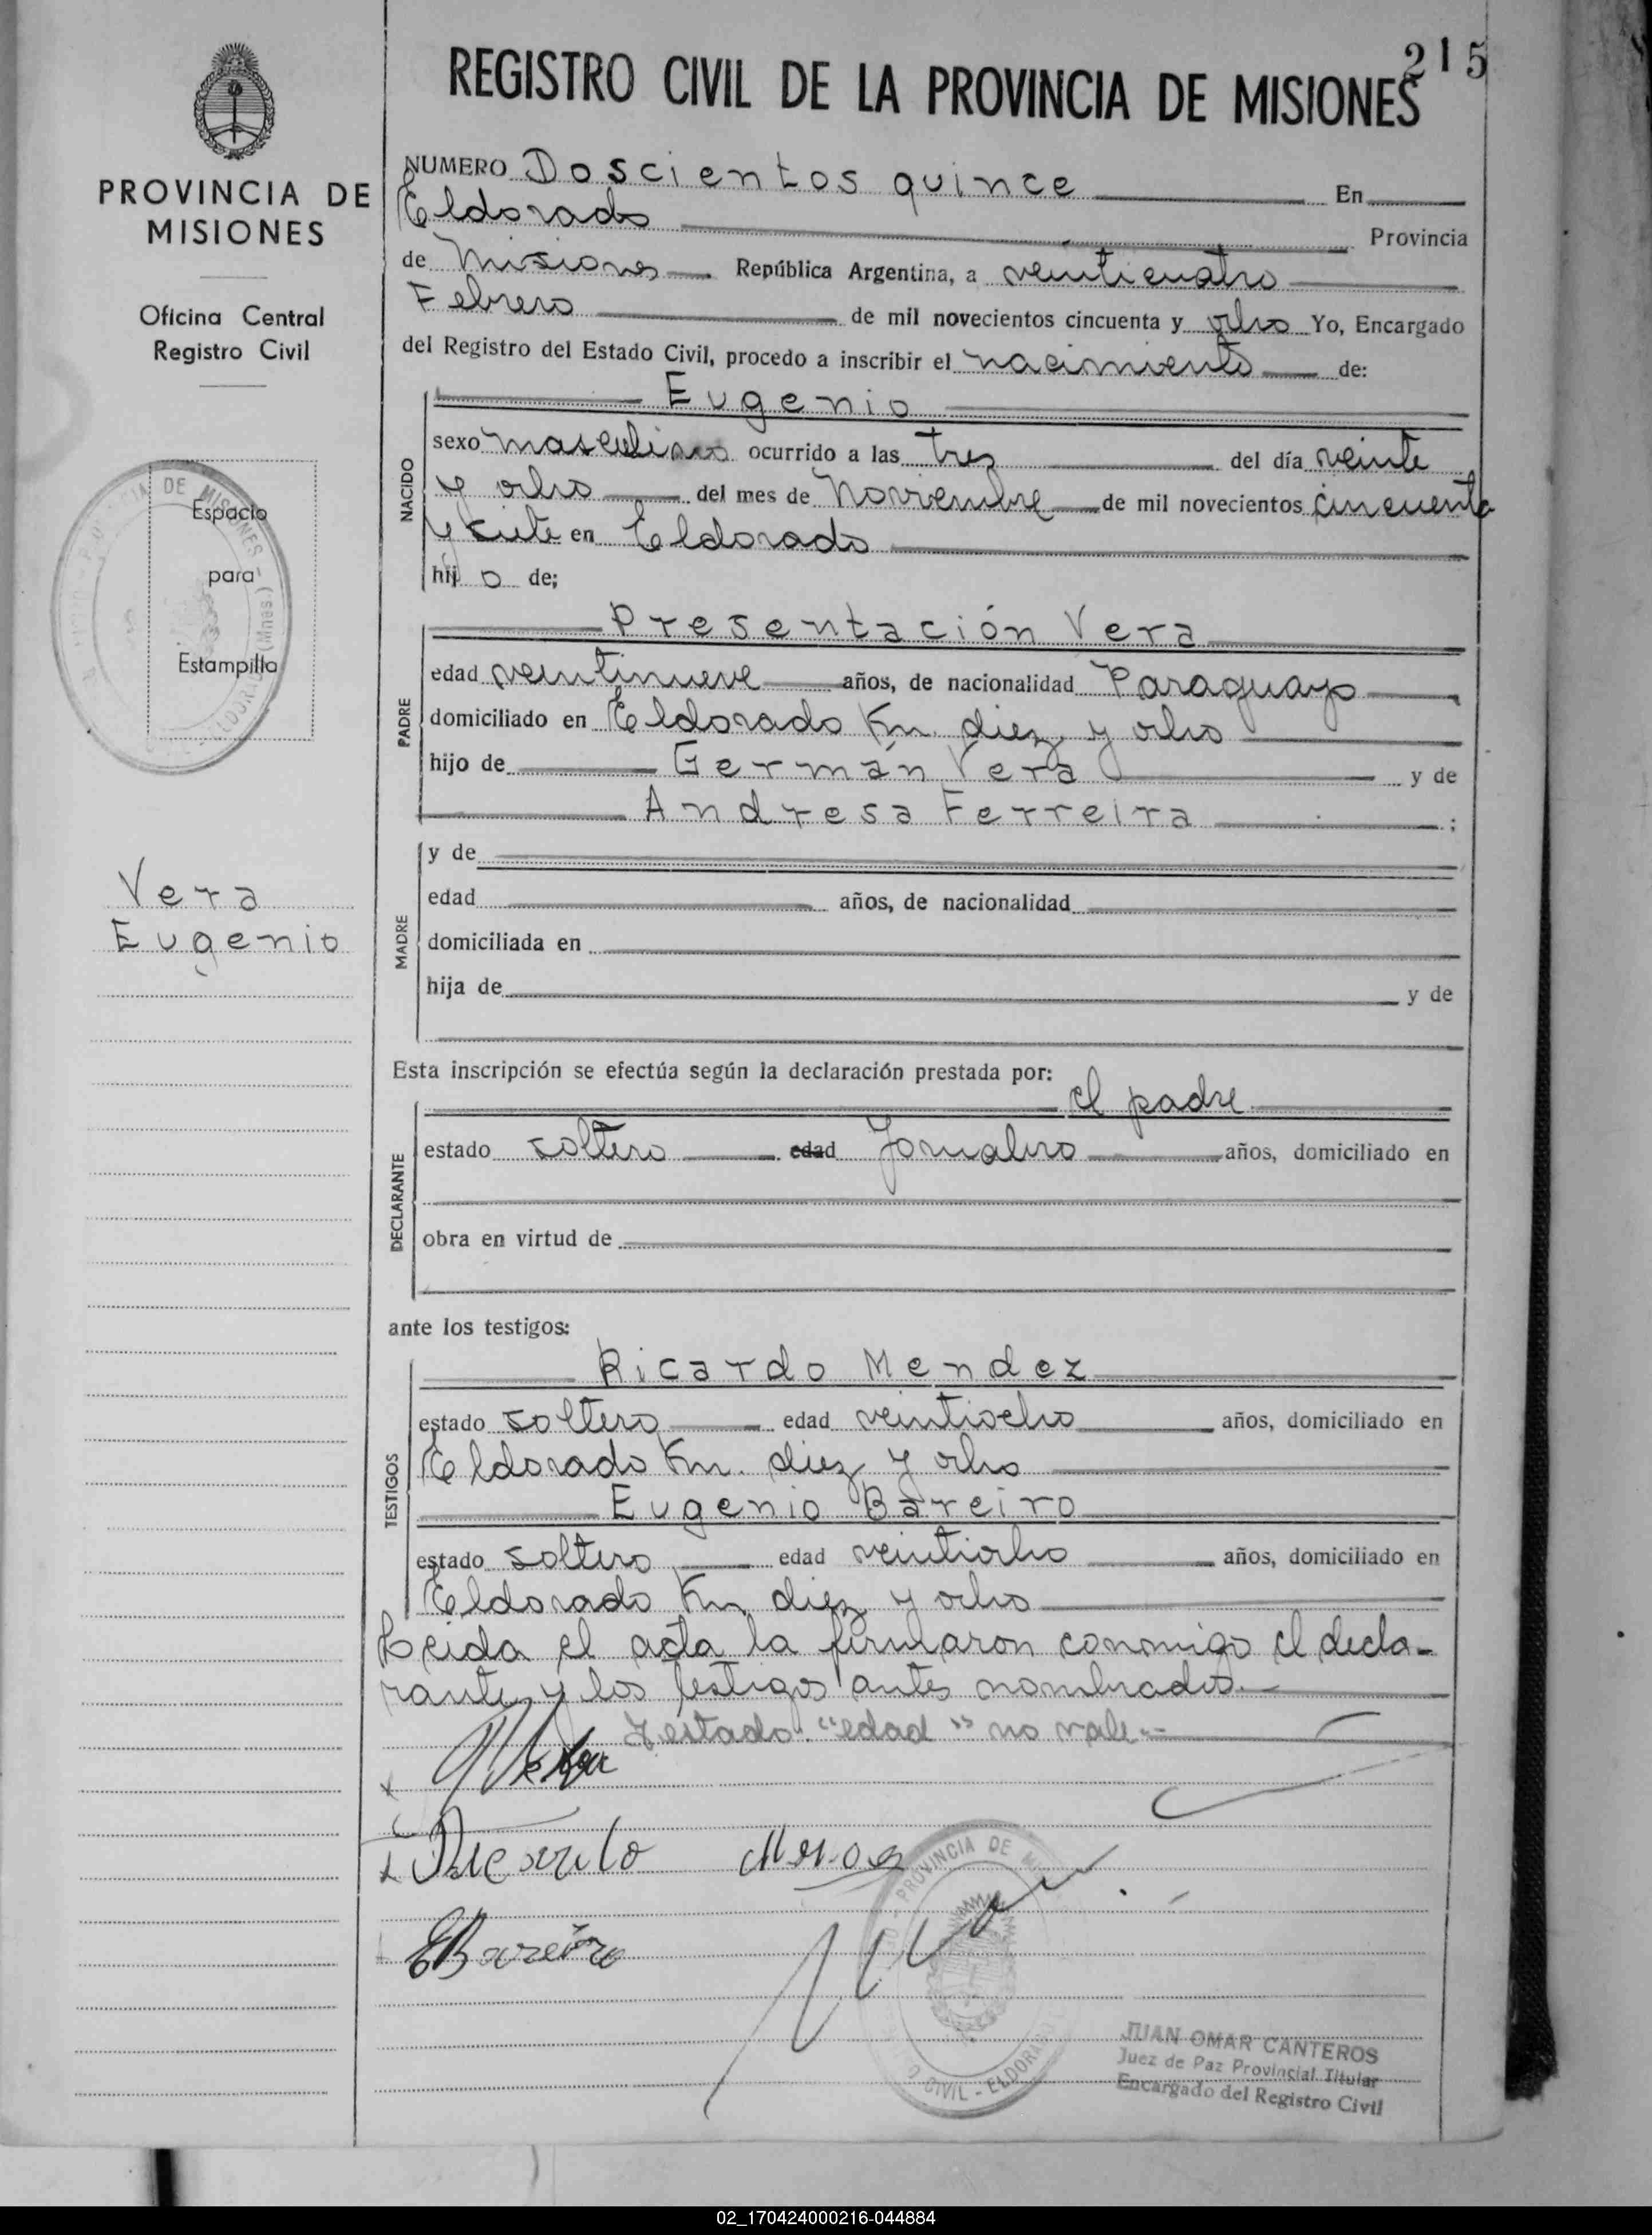 215
REGISTRO CIVIL DE LA PROVINCIA DE MISIONES
PROVINCIA DE
MISIONES
Oficina Central
Registro Civil
Espacio
para
Estampilla
Vera
Eugenio
NUMERO Doscientos quince En
Eldorado Provincia
de Misiones República Argentina, a veinticuatro
Febrero de mil novecientos cincuenta y ocho Yo, Encargado
del Registro del Estado Civil, procedo a inscribir el nacimiento de:
Eugenio
NACIDO
sexo masculino ocurrido a las tres del día veinte
y ocho del mes de Noviembre de mil novecientos cincuenta
y siete en Eldorado
hijo de;
Presentación Vera
PADRE
edad veintinueve años, de nacionalidad Paraguayo
domiciliado en Eldorado Km. diez y ocho
hijo de Germán Vera y de
Andresa Ferreira ;
MADRE
y de
edad años, de nacionalidad
domiciliada en
hija de y de
Esta inscripción se efectúa según la declaración prestada por:
el padre
DECLARANTE
estado soltero edad Jornalero años, domiciliado en
obra en virtud de
ante los testigos:
Ricardo Mendez
TESTIGOS
estado soltero edad veintiocho años, domiciliado en
Eldorado Km. diez y ocho
Eugenio Bareiro
estado soltero edad veintiocho años, domiciliado en
Eldorado Km diez y ocho
Leida el acta la firmaron conmigo el decla-
rante y los testigos antes nombrados.
Testado: "edad" no vale.-
Ricardo
EBareiro
PROVINCIA DE
CIVIL - ELDORADO
JUAN OMAR CANTEROS
Juez de Paz Provincial Titular
Encargado del Registro Civil
02_170424000216-044884